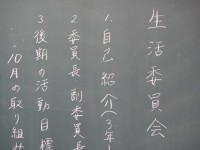 生活委員会
1.自己紹介(3年1
2.委員長 副委員長
3.後期の活動目標
・10月の取り組み